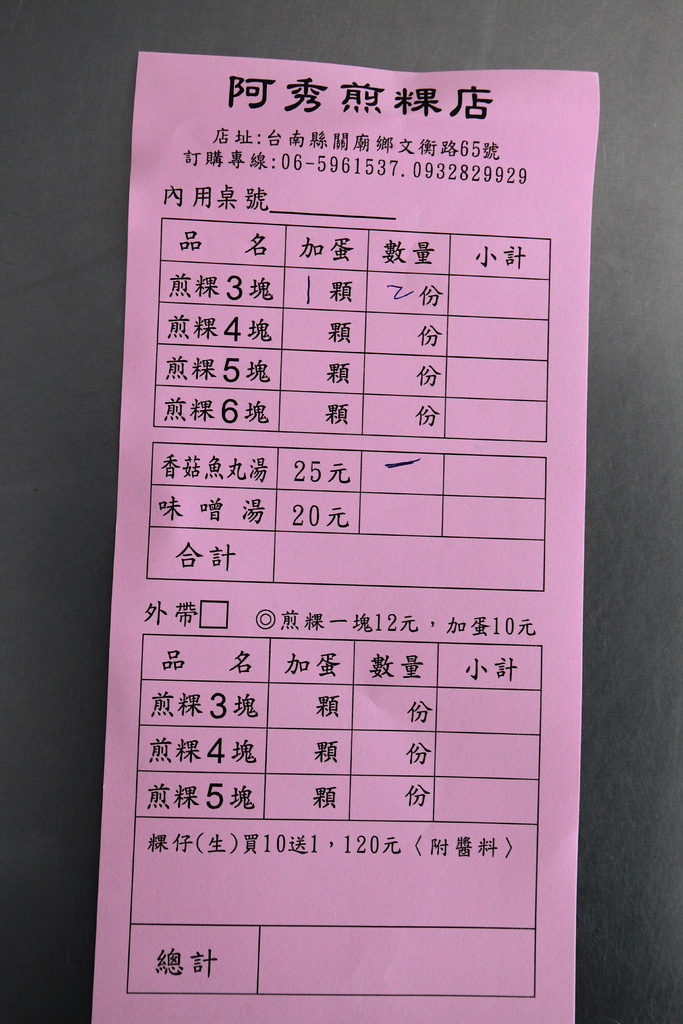 阿秀煎粿店
店址:台南縣關廟鄉文衡路65號
訂購專線:06-5961537.0932829929
內用桌號
品 名 加蛋 數量 小計
煎粿3塊 1顆 2份
煎粿4塊 顆 份
煎粿5塊 顆 份
煎粿6塊 顆 份
香菇魚丸湯 25元 一
味噌湯 20元
合計
外帶□ ◎煎粿一塊12元，加蛋10元
品 名 加蛋 數量 小計
煎粿3塊 顆 份
煎粿4塊 顆 份
煎粿5塊 顆 份
粿仔(生)買10送1，120元〈附醬料〉
總計